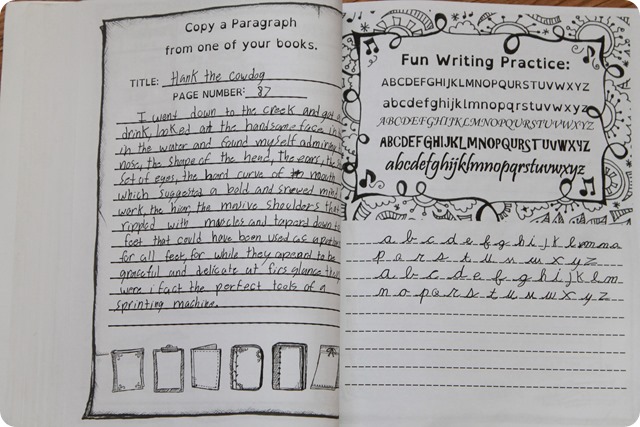 Copy a Paragraph
from one of your books.
TITLE: Hank the Cowdog
PAGE NUMBER: 87
I went down to the creek and got a
drink, looked at the handsome face in
in the winter and found myself admiring
nose, the shape of the head, the ears, the
set of eyes, the hard curve of mouth
which suggested a bold and
work, the hair, the masive shoulders that
rippled with muscles and taperd down to
feet that could have been used as a
for all feet, for while they apeared to be
graceful and delicate at firs glance they
were i fact the perfect tools of a
sprinting machine.
Fun Writing Practice:
ABCDEFGHIJKLMNOPQRSTUVWXYZ
abcdefghijklmnopqrstuvwxyz
ABCDEFGHIJKLMNOPQRSTUVWXYZ
ABCDEFGHIJKLMNOPQRSTUVWXYZ
abcdefghijklmnopqrstuvwxyz
a b c d e f g h i j k l m n o
p q r s t u v w x y z
a b c d e f g h i j k l m
n o p q r s t u v w x y z